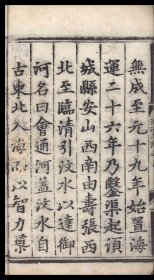 無成至元十九年始置海
運二十六年乃鑿渠起須
城縣安山西南由壽張西
北至臨清引汶水以達御
河名曰會通河蓋汶水自
古東北入海以智力